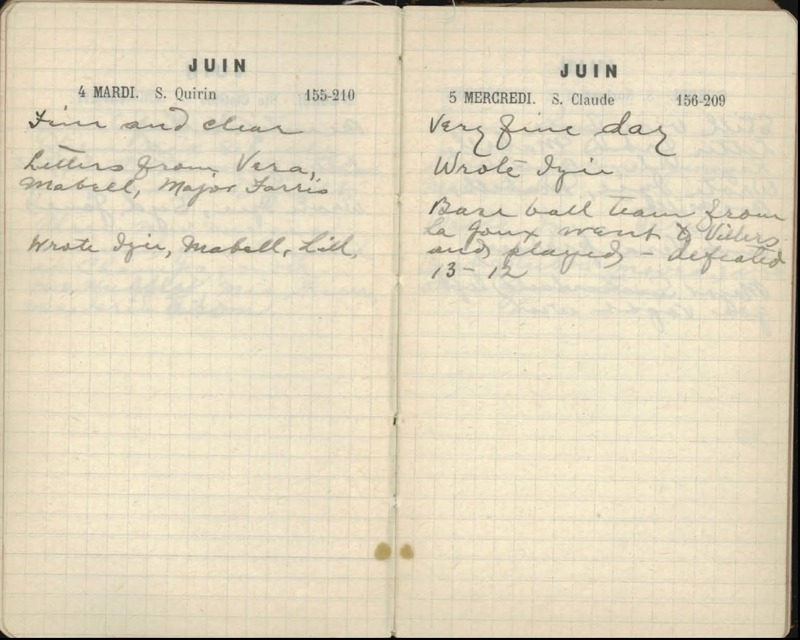 JUIN
4 MARDI. S. Quirin 155-210
Fine and clear
Letters from Vera,
Mabell, Major Farris
Wrote Izie, Mabell, Lill,
JUIN
5 MERCREDI. S. Claude 156-209
Very fine day
Wrote Izie
Base ball team from
la Joux went to Villers
and played - defeated
13-12